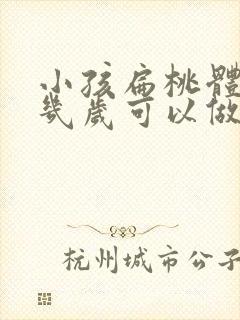 小孩扁桃體
幾歲可以做
杭州城市公子